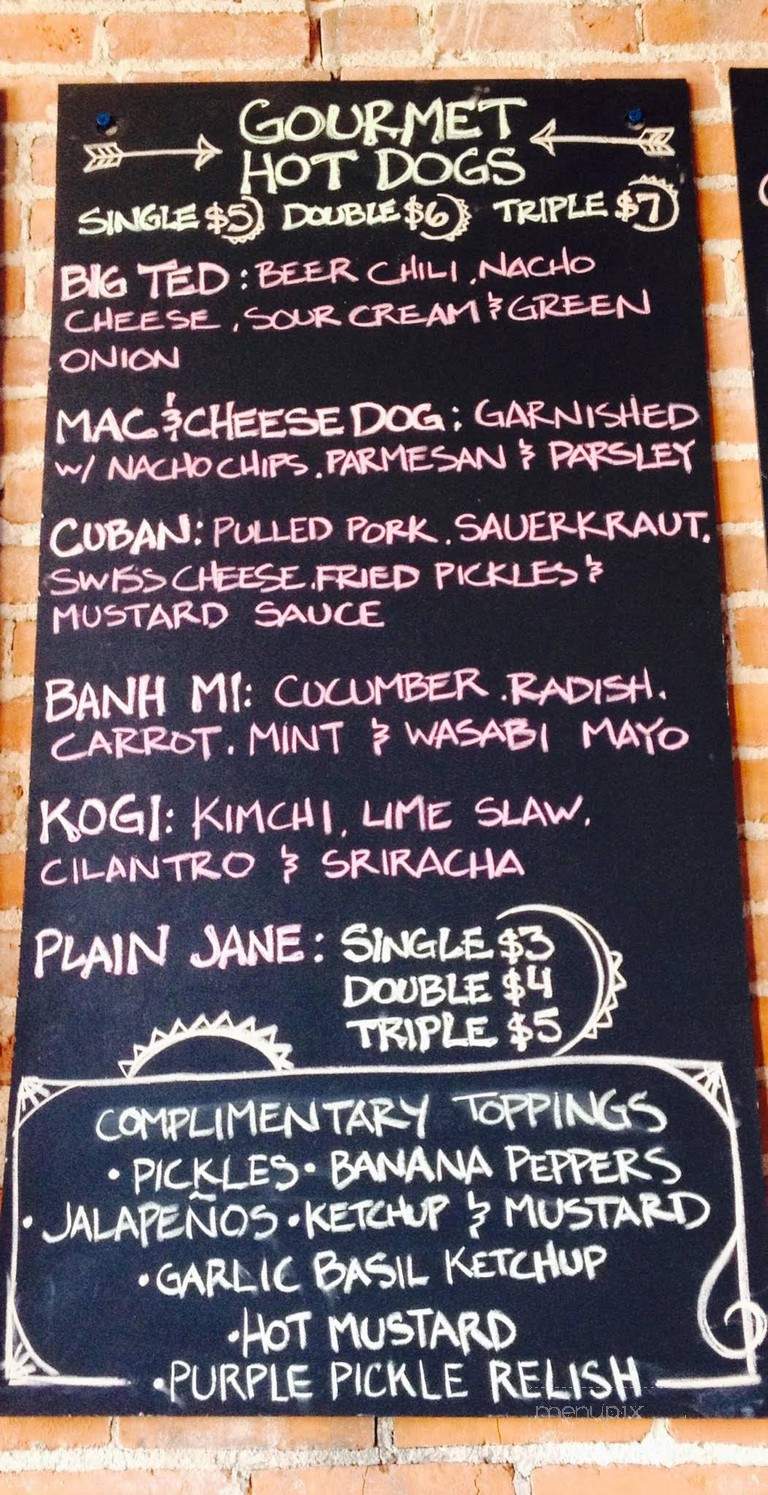 GOURMET
HOT DOGS
SINGLE $5 DOUBLE $6 TRIPLE $7
BIG TED: BEER CHILI, NACHO
CHEESE, SOUR CREAM & GREEN
ONION
MAC & CHEESE DOG: GARNISHED
W/ NACHO CHIPS, PARMESAN & PARSLEY
CUBAN: PULLED PORK, SAUERKRAUT,
SWISS CHEESE, FRIED PICKLES &
MUSTARD SAUCE
BANH MI: CUCUMBER, RADISH,
CARROT, MINT & WASABI MAYO
KOGI: KIMCHI, LIME SLAW,
CILANTRO & SRIRACHA
PLAIN JANE: SINGLE $3
DOUBLE $4
TRIPLE $5
COMPLIMENTARY TOPPINGS
• PICKLES • BANANA PEPPERS
• JALAPEÑOS • KETCHUP & MUSTARD
• GARLIC BASIL KETCHUP
• HOT MUSTARD
• PURPLE PICKLE RELISH
menupix